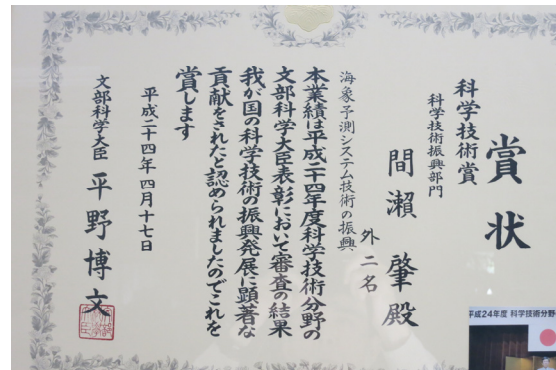 賞状
科学技術賞
科学技術振興部門
間瀬 肇殿
外二名
海象予測システム技術の振興
本業績は平成二十四年度科学技術分野の
文部科学大臣表彰において審査の結果
我が国の科学技術の振興発展に顕著な
貢献をされたと認められましたのでこれを
賞します
平成二十四年四月十七日
文部科学大臣 平野博文
平成24年度 科学技術分野